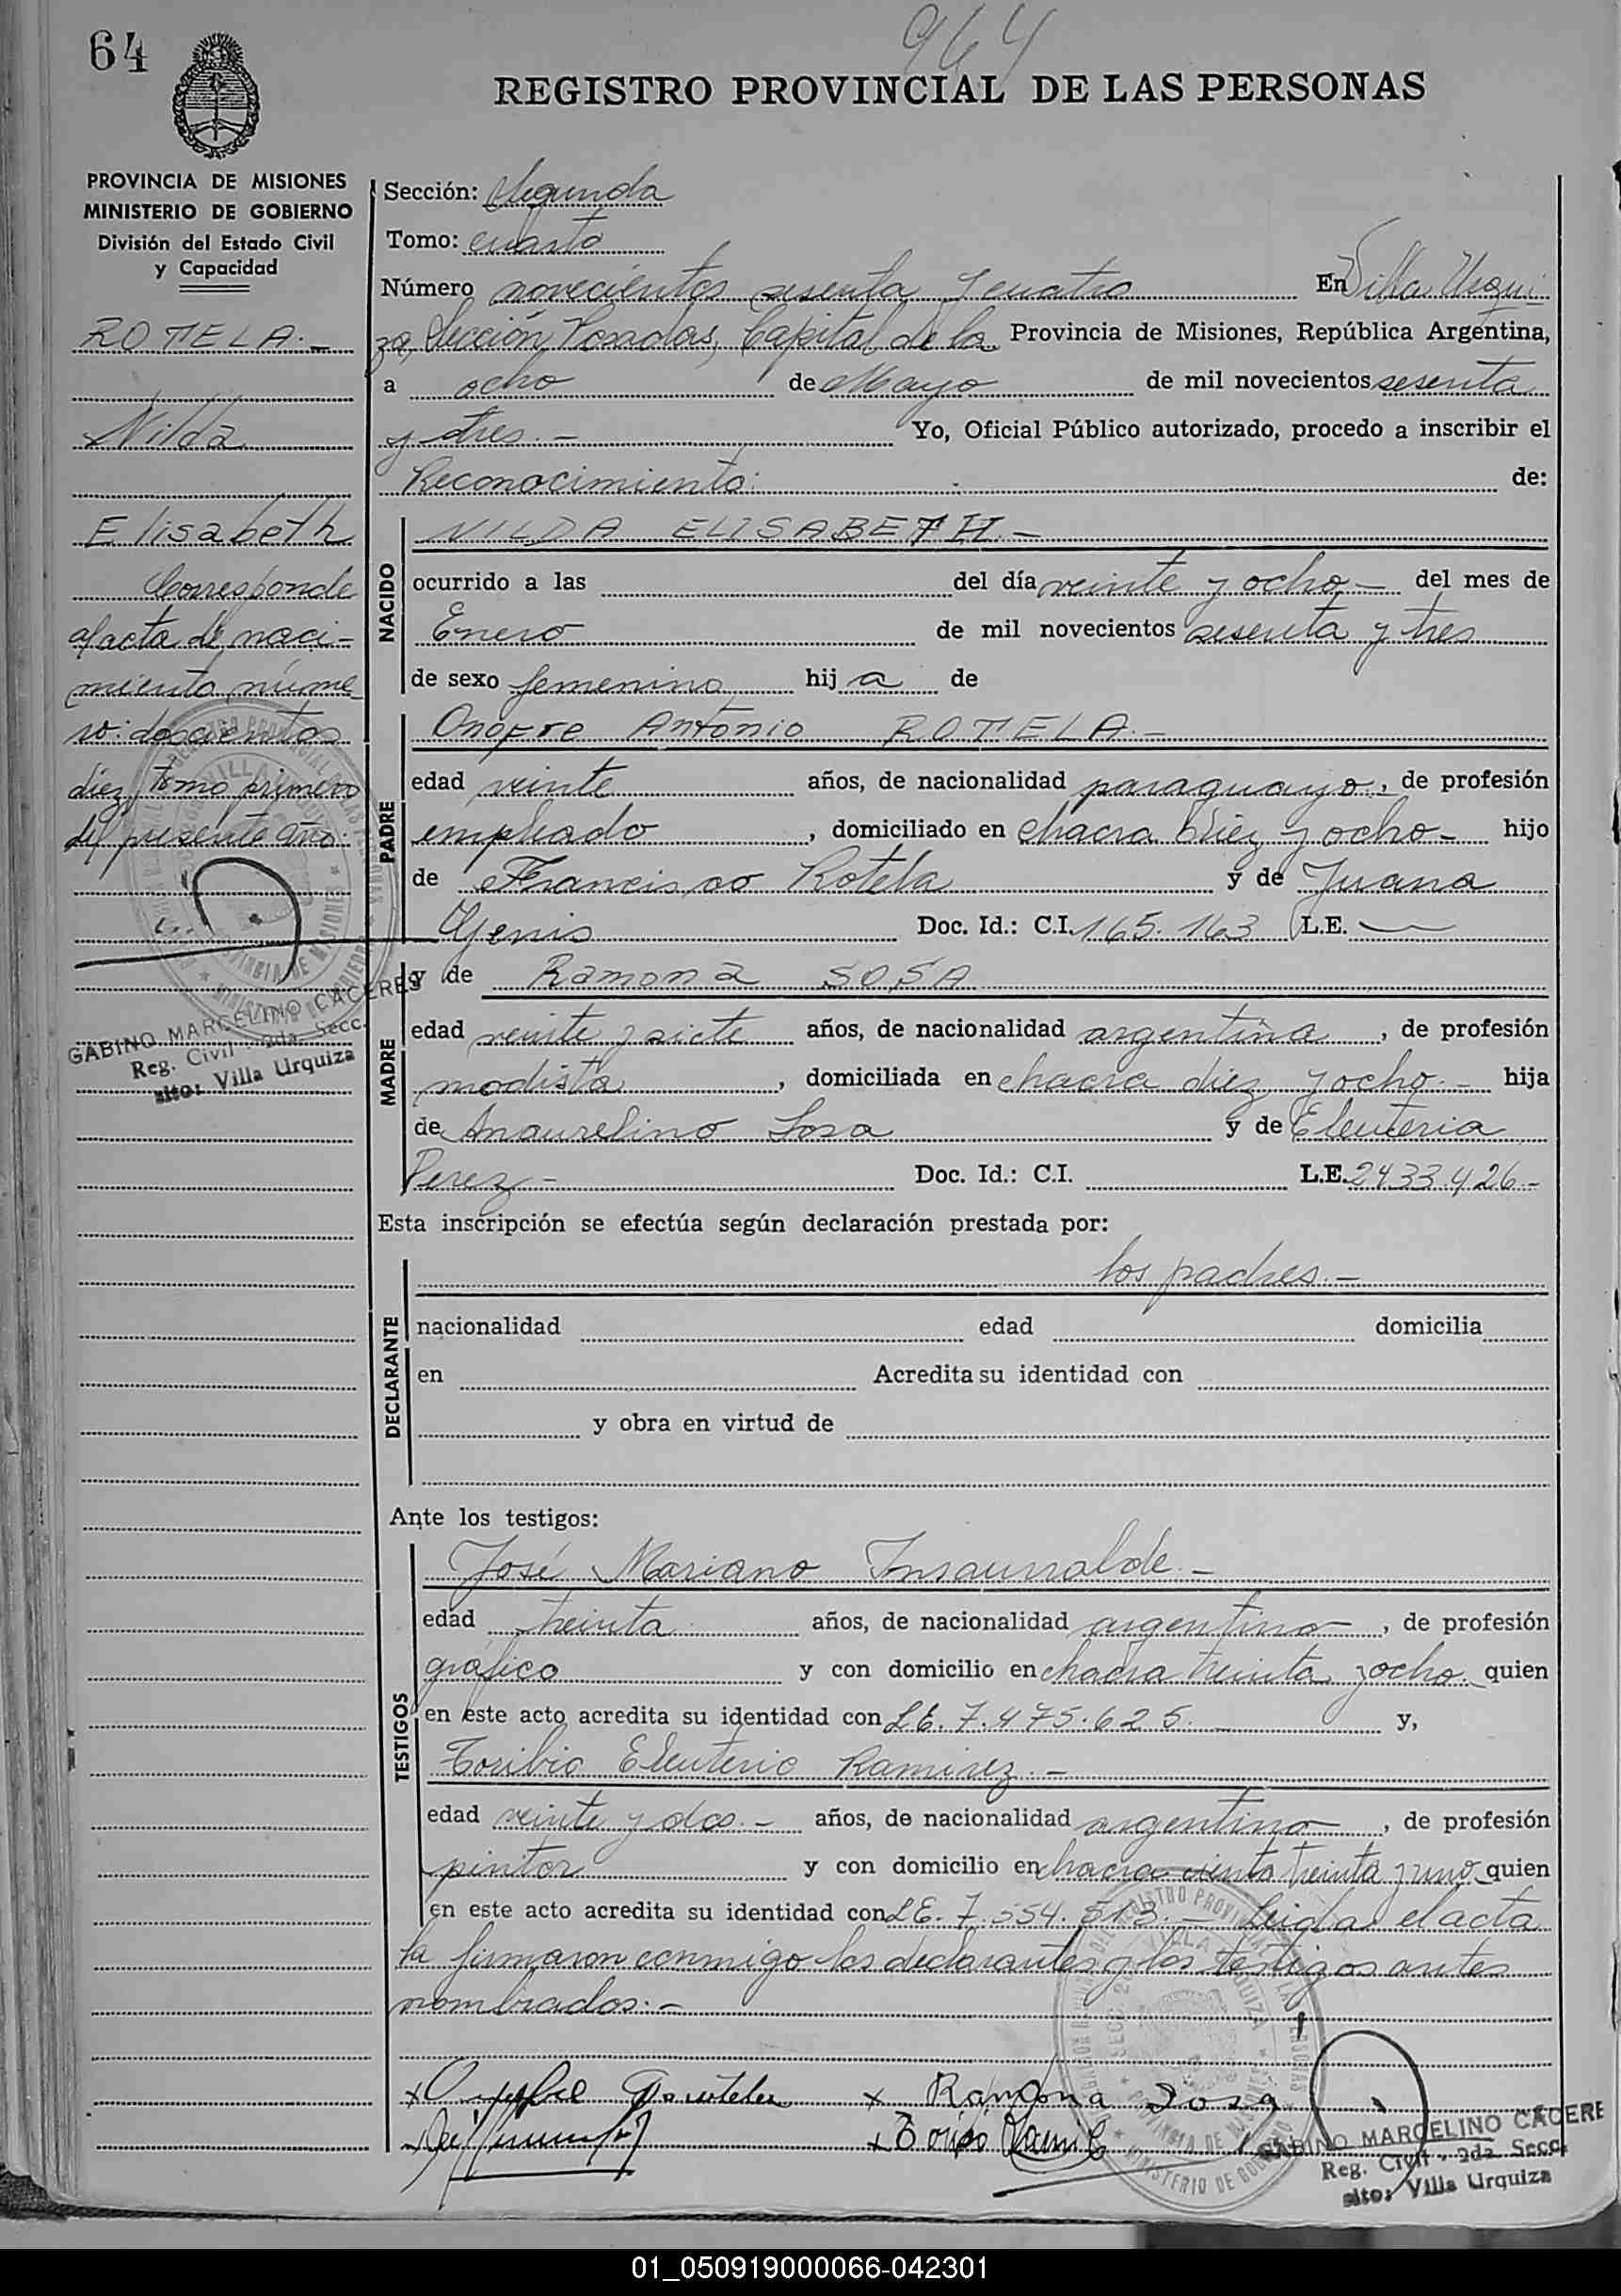 64
964
REGISTRO PROVINCIAL DE LAS PERSONAS
PROVINCIA DE MISIONES
MINISTERIO DE GOBIERNO
División del Estado Civil
y Capacidad
ROTELA.-
Nilda
Elisabeth
Corresponde
al acta de naci-
miento núme-
ro: doscientos
diez, tomo primero
del presente año.
GABINO MARCELINO CACERES
Reg. Civil - 2da. Secc.
sito: Villa Urquiza
Sección: Segunda
Tomo: cuarto
Número novecientos sesenta y cuatro En Villa Urqui-
za, Sección Posadas, Capital de la Provincia de Misiones, República Argentina,
a ocho de Mayo de mil novecientos sesenta
y tres.- Yo, Oficial Público autorizado, procedo a inscribir el
Reconocimiento: de:
NACIDO
NILDA ELISABETH.-
ocurrido a las del día veinte y ocho- del mes de
Enero de mil novecientos sesenta y tres
de sexo femenino hija de
PADRE
Onofre Antonio ROTELA.-
edad veinte años, de nacionalidad paraguayo, de profesión
empleado, domiciliado en chacra diez y ocho- hijo
de Francisco Rotela y de Juana
Yenis Doc. Id.: C.I. 165.163 L.E. —
MADRE
y de Ramona SOSA
edad veinte y siete años, de nacionalidad argentina, de profesión
modista, domiciliada en chacra diez y ocho.- hija
de Anaurelino Sosa y de Eleuteria
Perez- Doc. Id.: C.I. L.E. 2433.426-
Esta inscripción se efectúa según declaración prestada por:
DECLARANTE
los padres.-
nacionalidad edad domicilia
en Acredita su identidad con
y obra en virtud de
Ante los testigos:
TESTIGOS
José Mariano Insaurralde.-
edad treinta años, de nacionalidad argentino, de profesión
gráfico y con domicilio en chacra treinta y ocho. quien
en este acto acredita su identidad con L.E. 7.475.625. y,
Toribio Eleuterio Ramirez.-
edad veinte y dos.- años, de nacionalidad argentino, de profesión
pintor y con domicilio en chacra ciento treinta y uno quien
en este acto acredita su identidad con L.E. 7.554.513.- Leida el acta
la firmaron conmigo los declarantes y los testigos antes
nombrados.-
x x Ramona Sosa
x x Toribio
GABINO MARCELINO CACERE
Reg. Civil - 2da Secc.
sito: Villa Urquiza
01_050919000066-042301